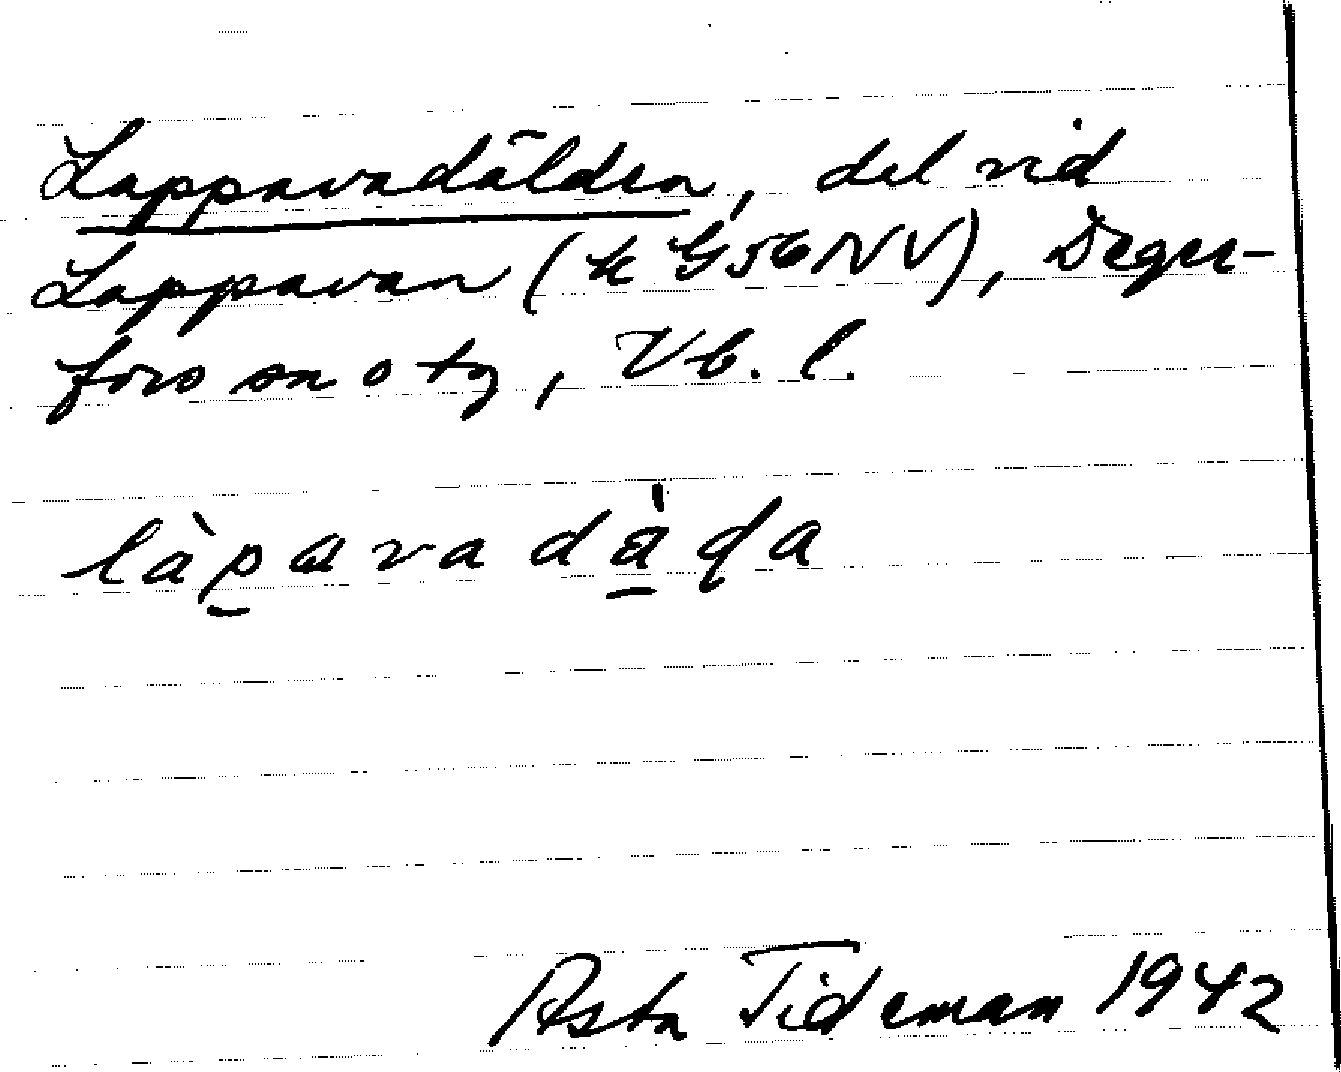 Lappavadälden, del vid
Lappavan (k G56NV), Deger-
fors sn o tg, Vb. l.
làpava dà da
Asta Tideman 1942